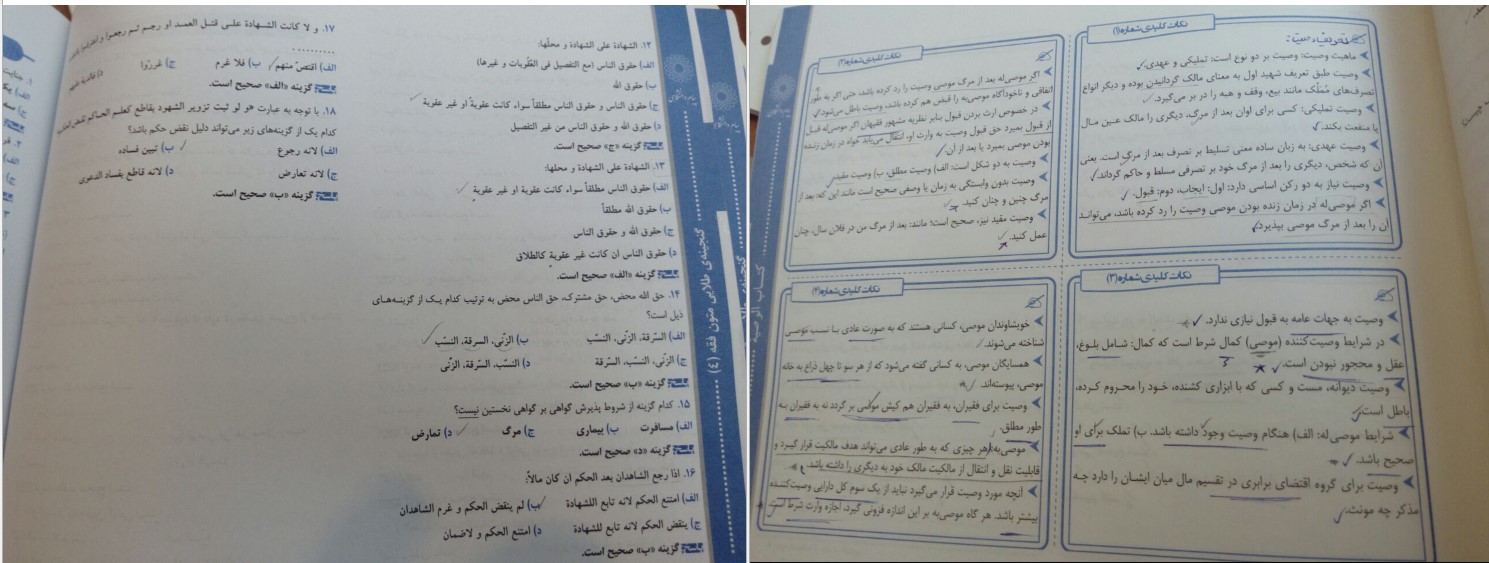 ۱۲. الشهادة علی الشهادة و محلّها:
الف) حقوق الناس (مع التفصیل فی العُقُوبات و غیرها)
ب) حقوق الله
ج) حقوق الناس و حقوق الناس مطلقاً سواء کانت عقوبةً او غیر عقوبة
د) حقوق الله و حقوق الناس من غیر التفصیل
پاسخ: گزینه «ج» صحیح است.
۱۳. الشهادة علی الشهادة و محلها:
الف) حقوق الناس مطلقاً سواء کانت عقوبة او غیر عقوبة
ب) حقوق الله مطلقاً
ج) حقوق الله و حقوق الناس
د) حقوق الناس ان کانت غیر عقوبة کالطلاق
پاسخ: گزینه «الف» صحیح است.
۱۴. حق الله محض، حق مشترک، حق الناس محض به ترتیب کدام یک از گزینه‌های
ذیل است؟
الف) السّرقة، الزّنی، النسّب
ب) الزّنی، السرقة، النسّب
ج) الزّنی، النسّب، السّرقة
د) النسّب، السّرقة، الزّنی
پاسخ: گزینه «ب» صحیح است.
۱۵. کدام گزینه از شروط پذیرش گواهی بر گواهی نخستین نیست؟
الف) مسافرت ب) بیماری ج) مرگ د) تمارض
پاسخ: گزینه «د» صحیح است.
۱۶. اذا رجع الشاهدان بعد الحکم ان کان مالاً:
الف) امتنع الحکم لانه تابع اللشهادة ب) لم ینقض الحکم و غرم الشاهدان
ج) ینقض الحکم لانه تابع للشهادة د) امتنع الحکم و لاضمان
پاسخ: گزینه «ب» صحیح است.
۱۷. و لا کانت الشهادة علی قتل العمد او رجم ثم رجعوا و اعترفوا
الف) اقتصّ منهم ب) فلا غرم ج) غرّروا د)
پاسخ: گزینه «الف» صحیح است.
۱۸. با توجه به عبارت هو لو ثبت تزویر الشهود بقاطع کعلم الحاکم
کدام یک از گزینه‌های زیر می‌تواند دلیل نقض حکم باشد؟
الف) لانه رجوع ب) تبین فساده
ج) لانه تعارض د) لانه قاطع بفساد الدعوی
پاسخ: گزینه «ب» صحیح است.
گنجینه‌ی طلایی متون فقه (۴)
کتاب الوصیة
نکات کلیدی شماره (۱)
تعریف وصیت:
ماهیت وصیت: وصیت بر دو نوع است: تملیکی و عهدی.
وصیت طبق تعریف شهید اول به معنای مالک گردانیدن بوده و دیگر انواع
تصرف‌های مُمَلّک مانند بیع، وقف و هبه را در بر می‌گیرد.
وصیت تملیکی: کسی برای اوان بعد از مرگ، دیگری را مالک عین مال
یا منفعت بکند.
وصیت عهدی: به زبان ساده معنی تسلیط بر تصرف بعد از مرگ است. یعنی
آن که شخص، دیگری را بعد از مرگ خود بر تصرفی مسلط و حاکم گرداند.
وصیت نیاز به دو رکن اساسی دارد: اول: ایجاب، دوم: قبول.
اگر موصی‌له در زمان زنده بودن موصی وصیت را رد کرده باشد، می‌تواند
آن را بعد از مرگ موصی بپذیرد.
نکات کلیدی شماره (۲)
اگر موصی‌له بعد از مرگ موصی وصیت را رد کرده باشد، حتی اگر به طور
اتفاقی و ناخودآگاه موصی‌به را قبض هم کرده باشد، وصیت باطل می‌شود.
در خصوص ارث بردن قبول بنابر نظریه مشهور فقیهان اگر موصی‌له قبل
از قبول بمیرد حق قبول وصیت به وارث او، انتقال می‌یابد خواه در زمان زنده
بودن موصی بمیرد یا بعد از آن.
وصیت به دو شکل است: الف) وصیت مطلق، ب) وصیت مقید.
وصیت بدون وابستگی به زمان یا وصفی صحیح است مانند این که: بعد از
مرگ چنین و چنان کنید.
وصیت مقید نیز، صحیح است؛ مانند: بعد از مرگ من در فلان سال، چنان
عمل کنید.
نکات کلیدی شماره (۳)
وصیت به جهات عامه به قبول نیازی ندارد.
در شرایط وصیت‌کننده (موصی) کمال شرط است که کمال: شامل بلوغ،
عقل و محجور نبودن است.
وصیت دیوانه، مست و کسی که با ابزاری کشنده، خود را محروم کرده،
باطل است.
شرایط موصی‌له: الف) هنگام وصیت وجود داشته باشد. ب) تملک برای او
صحیح باشد.
وصیت برای گروه اقتضای برابری در تقسیم مال میان ایشان را دارد چه
مذکر چه مونث.
نکات کلیدی شماره (۴)
خویشاوندان موصی، کسانی هستند که به صورت عادی با نسب موصی
شناخته می‌شوند.
همسایگان موصی، به کسانی گفته می‌شود که از هر سو تا چهل ذراع به خانه
موصی، پیوسته‌اند.
وصیت برای فقیران، به فقیران هم کیش موصی بر گردد نه به فقیران به
طور مطلق.
موصی‌به: هر چیزی که به طور عادی می‌تواند هدف مالکیت قرار گیرد و
قابلیت نقل و انتقال از مالکیت مالک خود به دیگری را داشته باشد.
آنچه مورد وصیت قرار می‌گیرد نباید از یک سوم کل دارایی وصیت‌کننده
بیشتر باشد. هر گاه موصی‌به بر این اندازه فزونی گیرد، اجازه وارث شرط است.